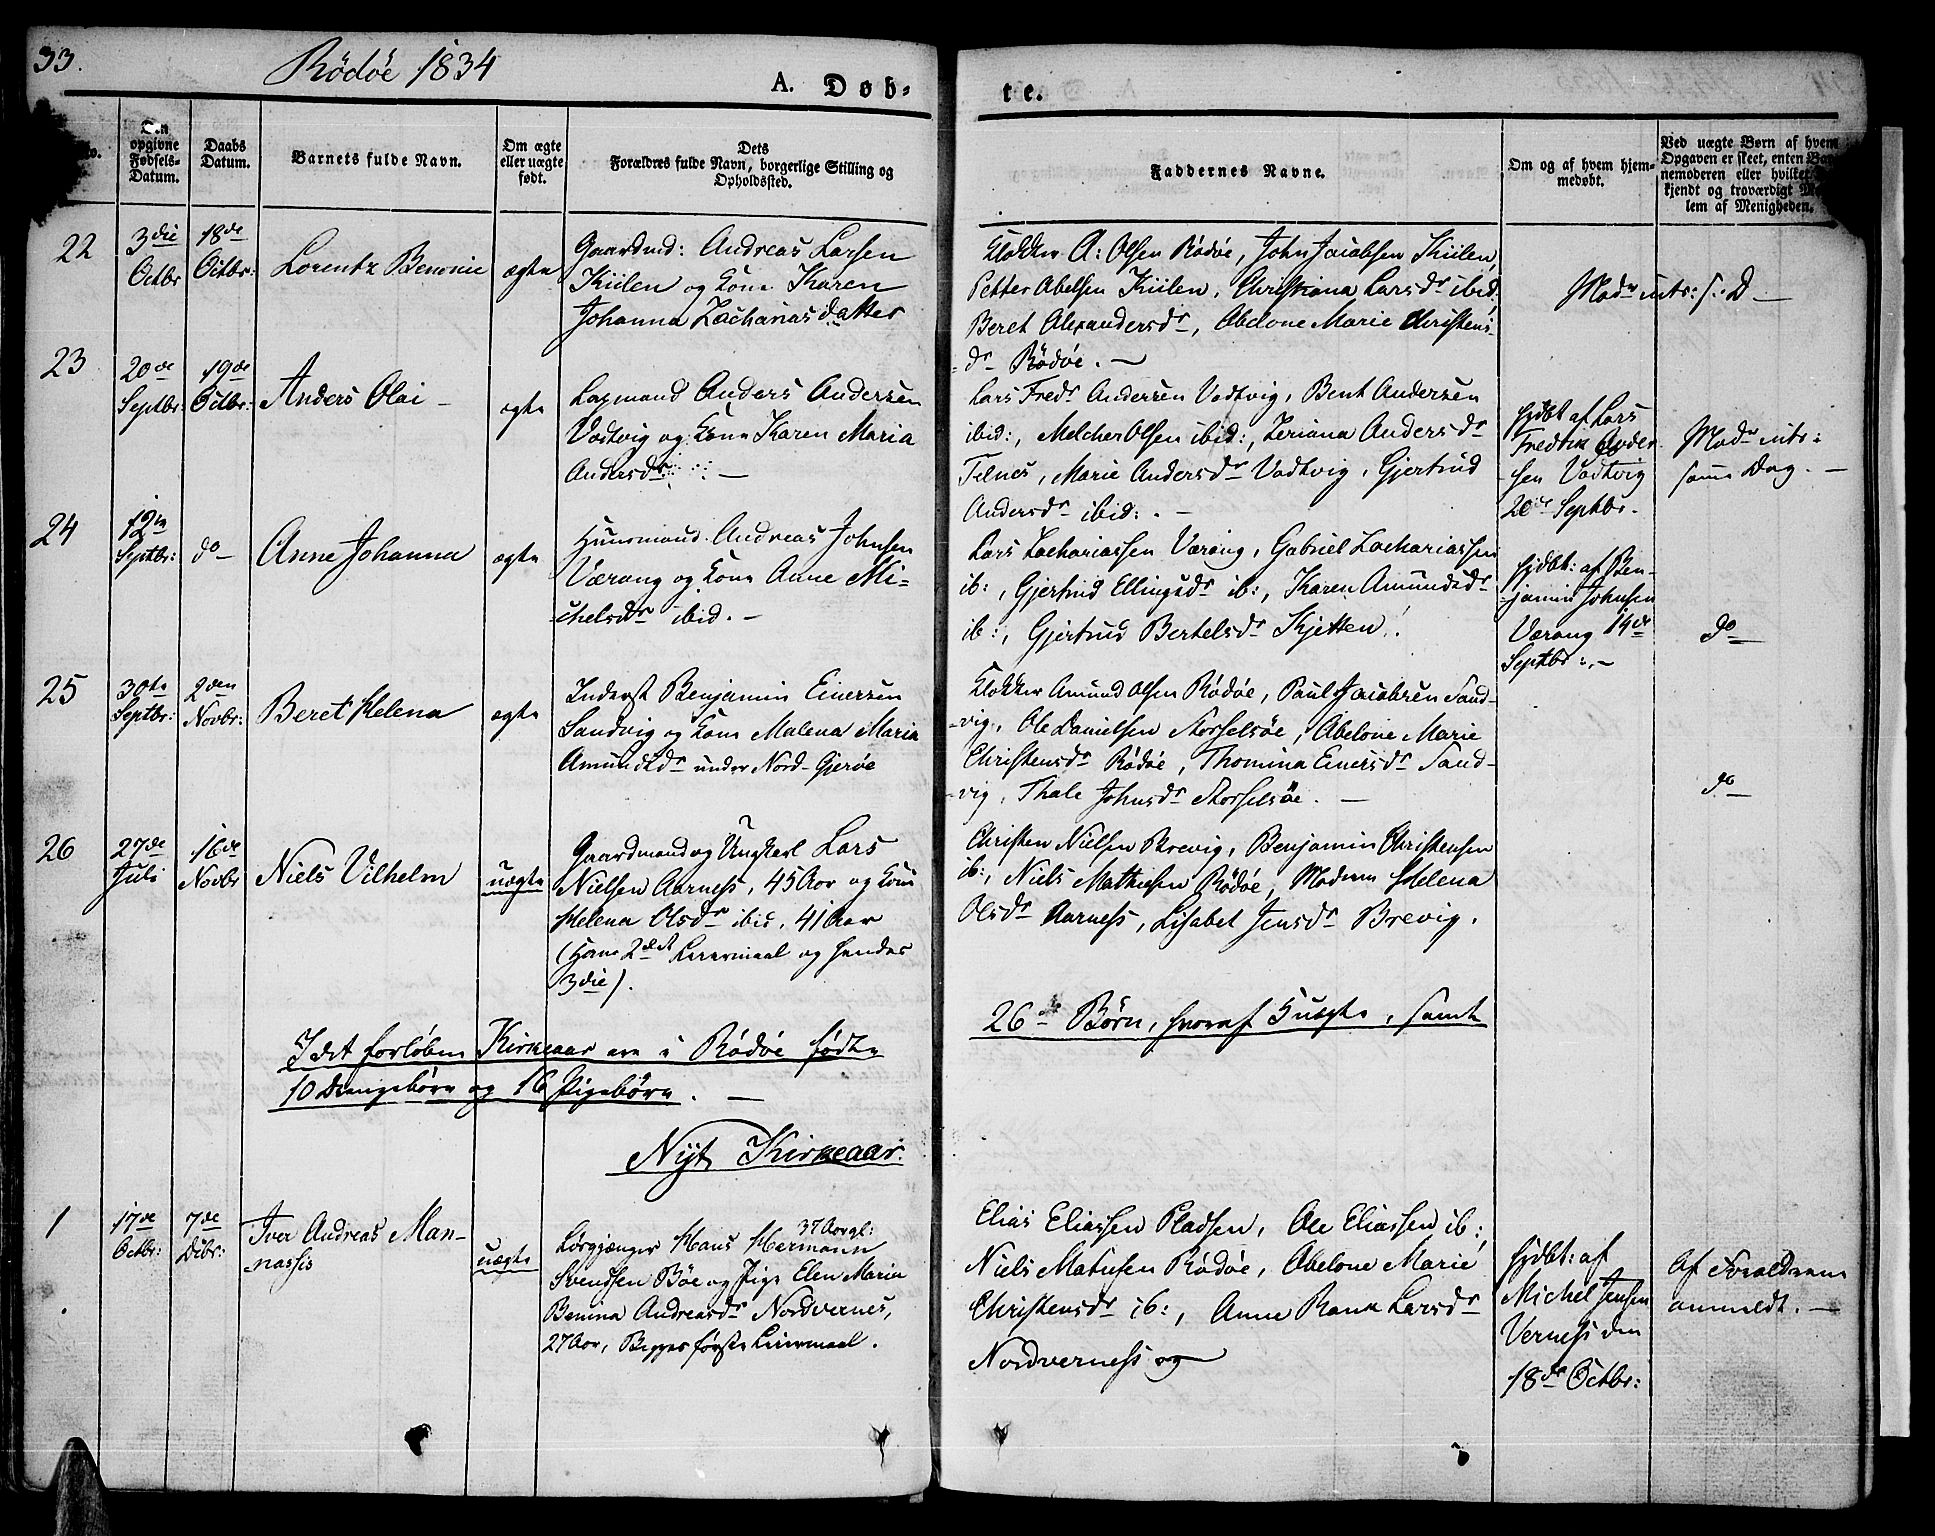 33.
Rödöe 1834
A. Døb-
te.
No.
Den opgivne Fødsels-Datum.
Daabs Datum.
Barnets fulde Navn.
Om ægte eller uægte født.
Dets Forældres fulde Navn, borgerlige Stilling og Opholdssted.
Faddernes Navne.
Om og af hvem hjemmedøbt.
Ved uægte Børn af hvem Opgaven er skeet, enten Barnemoderen eller hvilket kjendt og troværdigt Medlem af Menigheden.
22
3die Octbr
18de Octbr:
Lorentz Benonie
ægte
Gaardmd: Andreas Larsen
Kiilen og Kone Karen
Johanna Zachariasdatter
Klokker A: Olsen Rödöe, John Jacobsen Kiilen,
Petter Abelsen Kiilen, Christiana Larsdr ibid
Beret Alexandersdr, Abelone Marie Christens
dr Rödöe. —
Modr intr: s. D —
23
20de Septbr:
19de Octbr:
Anders Olai —
ægte
Laxmand Anders Andersen
Vadtvig og Kone Karen Maria
Andersdr —
Lars Fredr Andersen Vadtvig, Bent Andersen
ibid:, Melcher Olsen ibid:, Zeriana Andersdr
Telnes, Marie Andersdr Vadtvig, Gjertrud
Andersdr ibid: . —
hjdbt af Lars
Fredrik Ander-
sen Vadtvig
20de Septbr.
Modr intr:
samme Dag. —
24
12te Septbr:
do
Anne Johanna
ægte
Huusmand Andreas Johnsen
Værang og Kone Anne Mi-
chelsdr ibid. —
Lars Zachariassen Værang, Gabriel Zachariassen
ib:, Gjertrud Ellingsdr ib:, Karen Amundsdr
ib:, Gjertrud Bertelsdr Kjetten.
hjdbt: af Ben-
jamin Johnsen
Værang 14de
Septbr: . —
do
25
30te Septbr:
2den Novbr:
Beret Helena
ægte
Inderst Benjamin Einersen
Sandvig og Kone Malena Maria
Amundsdr under Nord-Gjerøe
Klokker Amund Olsen Rödöe, Paul Jacobsen Sand-
vig, Ole Danielsen Storselsöe, Abelone Marie
Christensdr Rödöe, Thomina Einersdr Sand-
vig, Thale Johnsdr Storselsöe. —
do
26
27de Juli
16de Novbr
Niels Vilhelm
uægte
Gaardmand og Ungkarl Lars
Nielsen Aarness, 45 Aar og Kone
Helena Olsdr ibid, 41 Aar
(Hans 2det Leiermaal og hendes
3die).
Christen Nielsen Brevig, Benjamin Christensen
ib:, Niels Mathiesen Rödöe, Modren Helena
Olsdr Aarness, Lisabet Jensdr Brevig.
I det forløbne Kirkeaar ere i Rödöe fødte
26 Børn, hvoraf 5 uægte, samt
10 Drengebörn og 16 Pigebörn. —
Nyt Kirkeaar.
1
17de Octbr:
7de Dcbr:
Iver Andreas Man-
nassis
uægte
37 Aar gl:
Lösgjænger Hans Hermann
Svendsen Böe og Pige Elen Maria
Benina Andreasdr Nordvernes,
27 Aar, Begges første Leiermaal.
Elias Eliassen Pladsen, Ole Eliassen ib:,
Niels Matiisen Rödöe, Abelone Marie
Christensdr ib:, Anne Rank Larsdr
Nordverness og
hjdbt: af
Michel Jensen
Verness den
18de Octbr:
Af Forældrene
anmeldt. —